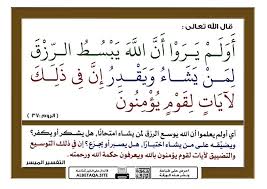 قال الله تعالى :
أَوَلَمْ يَرَوْا أَنَّ اللَّهَ يَبْسُطُ الرِّزْقَ
لِمَن يَشَاءُ وَيَقْدِرُ إِنَّ فِي ذَلِكَ
لَآيَاتٍ لِّقَوْمٍ يُؤْمِنُونَ
[الروم: ٣٧]
أي أولم يعلموا أن الله يوسع الرزق لمن يشاء امتحانًا، هل يشكر أو يكفر؟
ويضيّقه على من يشاء اختبارًا، هل يصبر أو يجزع؟ إن في ذلك التوسيع
والتضييق لآيات لقوم يؤمنون بالله ويعرفون حكمة الله ورحمته.
التفسير الميسر
ALBETAQA.SITE